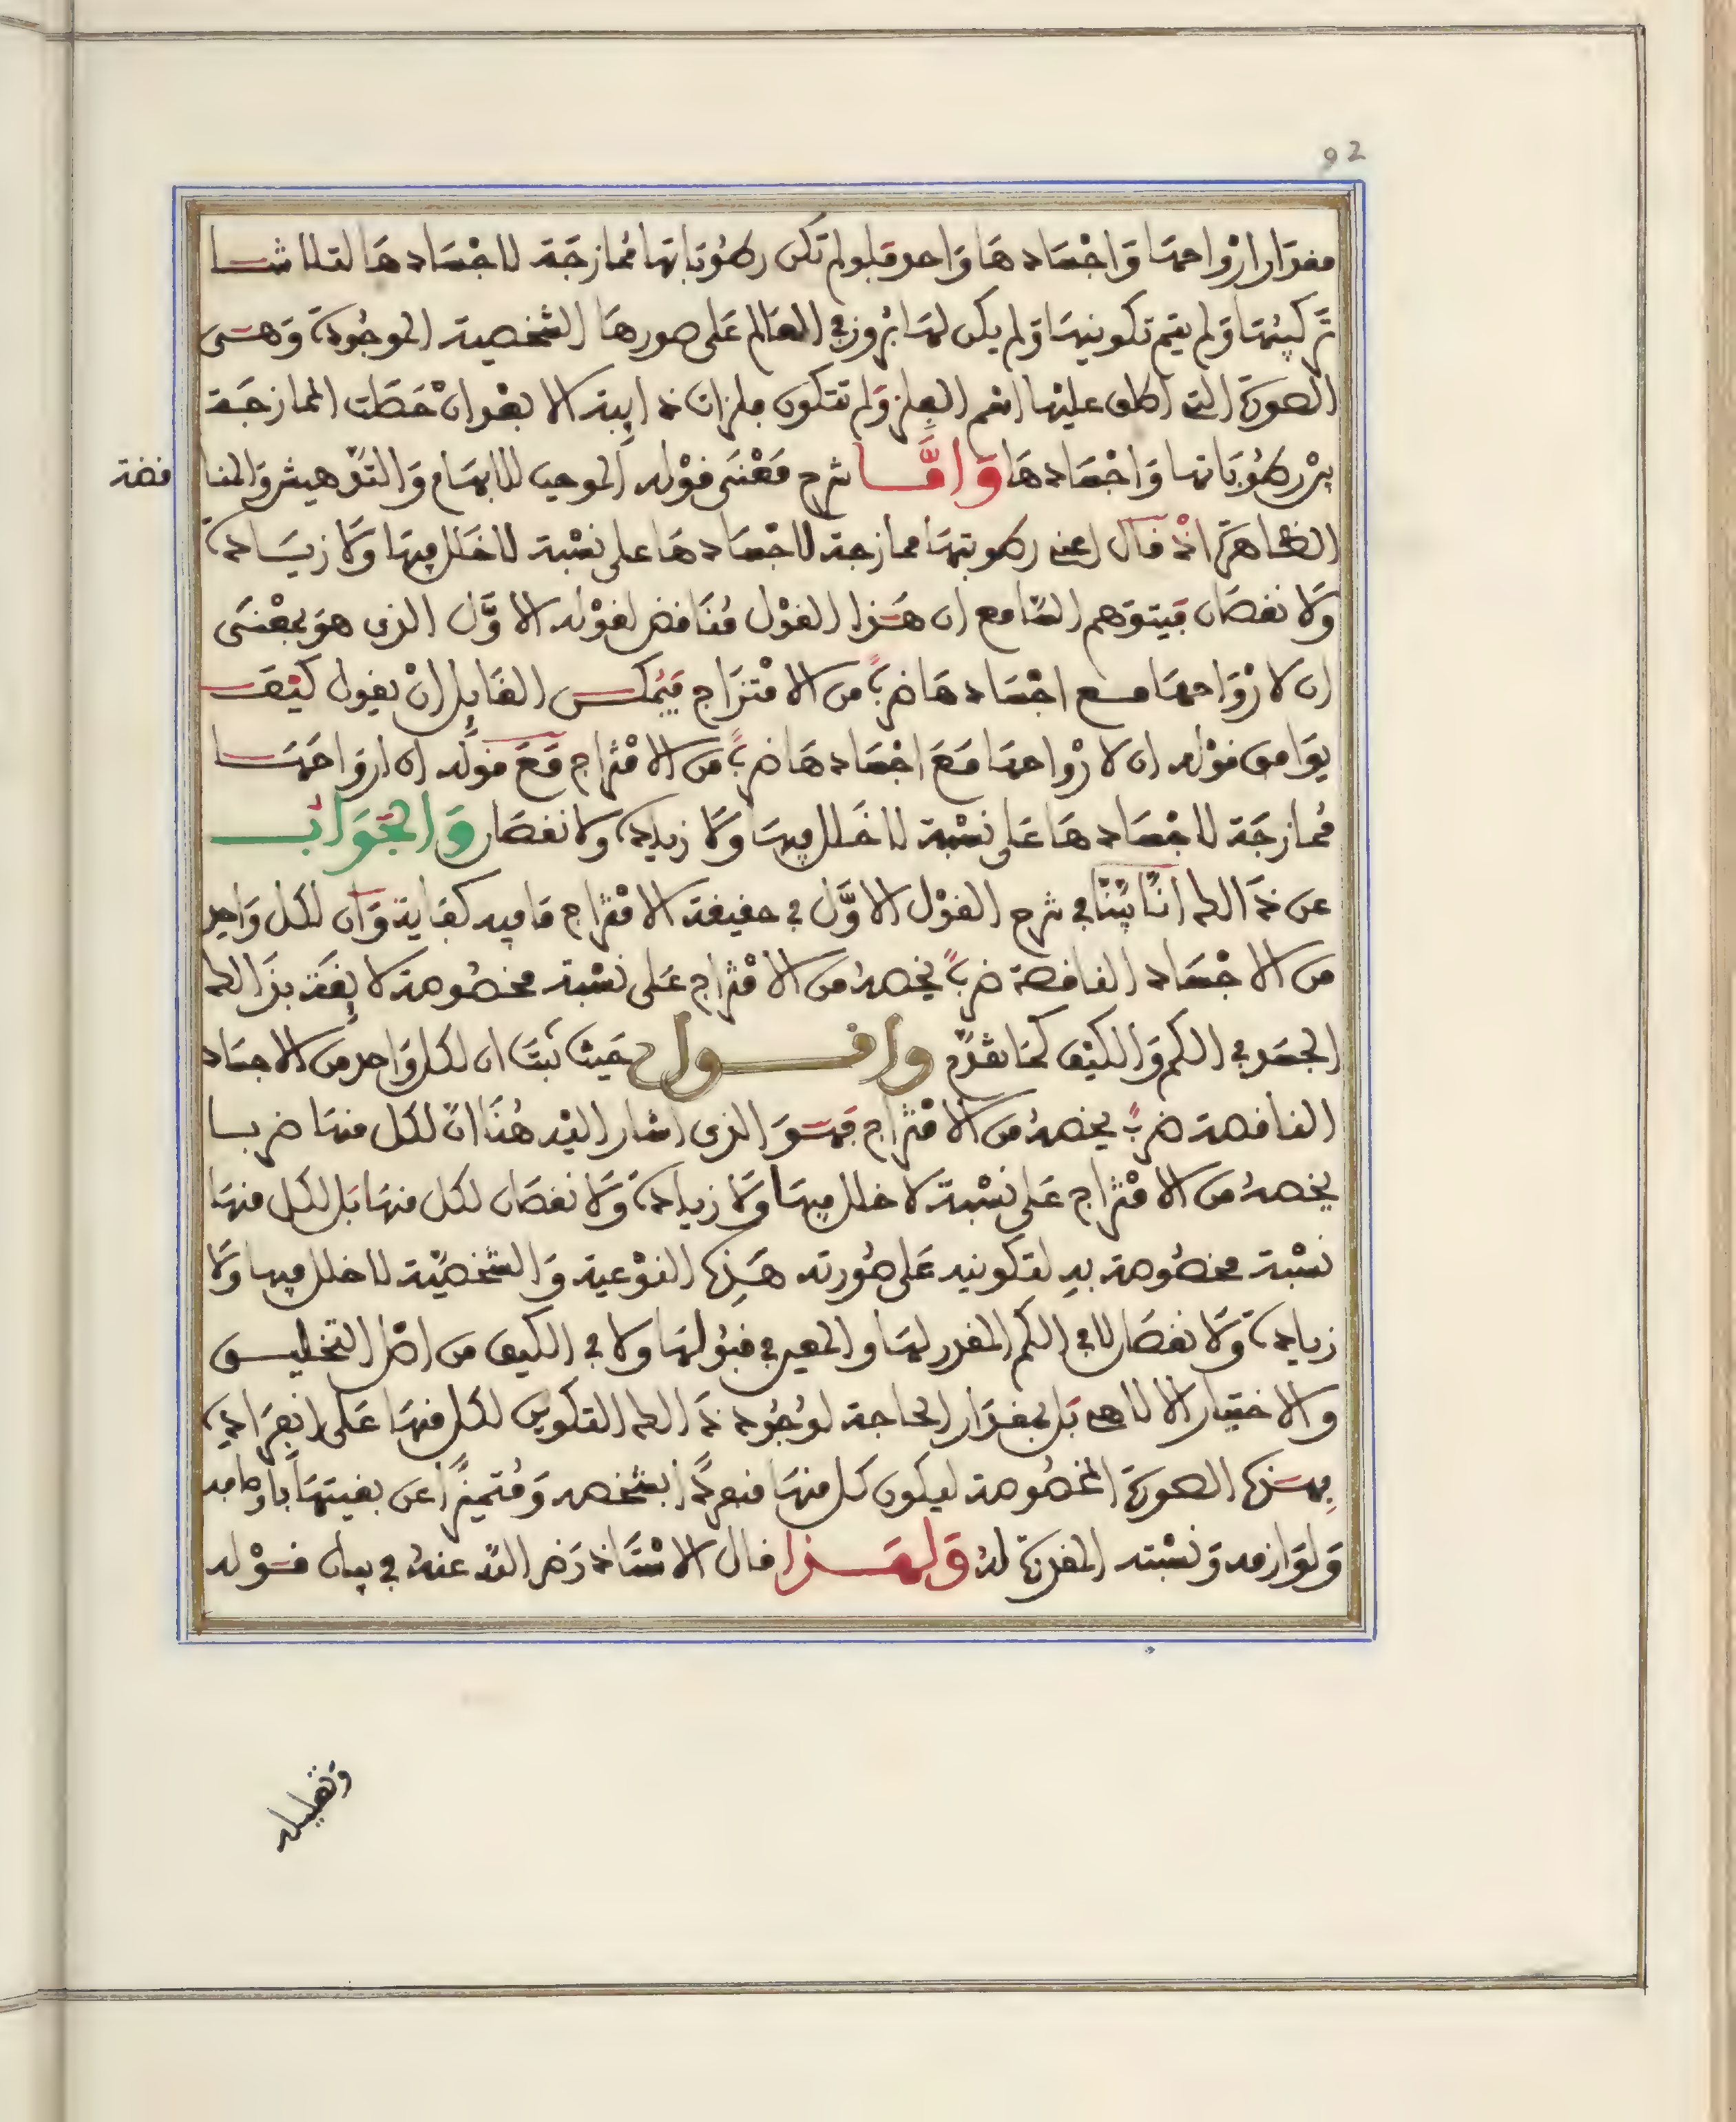 92
مقدار ارواحها واجسادها واحد فلو لم تكن رطوباتها ممازجة لاجسادها لتلاشا
تركيبها ولم يتم تكوينها ولم يكن لها بروز في العالم على صورها الشخصية الموجودة وهي
الصورة التي اطلق عليها اسم الفلز ولم تتكون فلزات ذايبة الا بعد ان حصلت الممازجة
بين رطوباتها واجسادها واما شرح معنى قوله الموجب للابهام والتدهيش والمنا
قضة
الظاهرة اذ قال اعني رطوبتها ممازجة لاجسادها على نسبة لا خلل فيها ولا زيادة
ولا نقصان فيتوهم السامع ان هذا القول مناقض لقوله الاول الذي هو بمعنى
ان لارواحها مع اجسادها ضرب من الامتزاج فيمكن القايل ان يقول كيف
يوافق قوله ان لارواحها مع اجسادها ضرب من الامتزاج مع قوله ان ارواحها
ممازجة لاجسادها على نسبة لا خلل فيها ولا زيادة ولا نقصان والجواب
عن ذالك اننا بينا في شرح القول الاول في حقيقة الامتزاج ما فيه كفاية وان لكل واحد
من الاجساد الناقصة ضرب يخصه من الامتزاج على نسبة مخصوصة لايقة بذالك
الجسد في الكم والكيف كما تقدم واقول حيث ثبت ان لكل واحد من الاجساد
الناقصة ضرب يخصه من الامتزاج فهو الذي اشار اليه هنا ان لكل منها ضربا
يخصه من الامتزاج على نسبة لا خلل فيها ولا زيادة ولا نقصان لكل منها بل لكل منها
نسبة مخصوصة به لتكوينه على صورته هذه النوعية والشخصية لا خلل فيها ولا
زيادة ولا نقصان لا في الكم المقدر لها والمعين في قبولها ولا في الكيف من اصل التخليق
والاختيار الالاهي بل بمقدار الحاجة لوجود ذالك التكوين لكل منها على انفراده
بهذه الصورة المخصوصة ليكون كل منها منفردا بشخصه ومتميزا عن بقيتها باوصافه
ولوازمه ونسبته المقدرة له ولهذا قال الاستاذ رضي الله عنه في بيان قوله
وتعليله